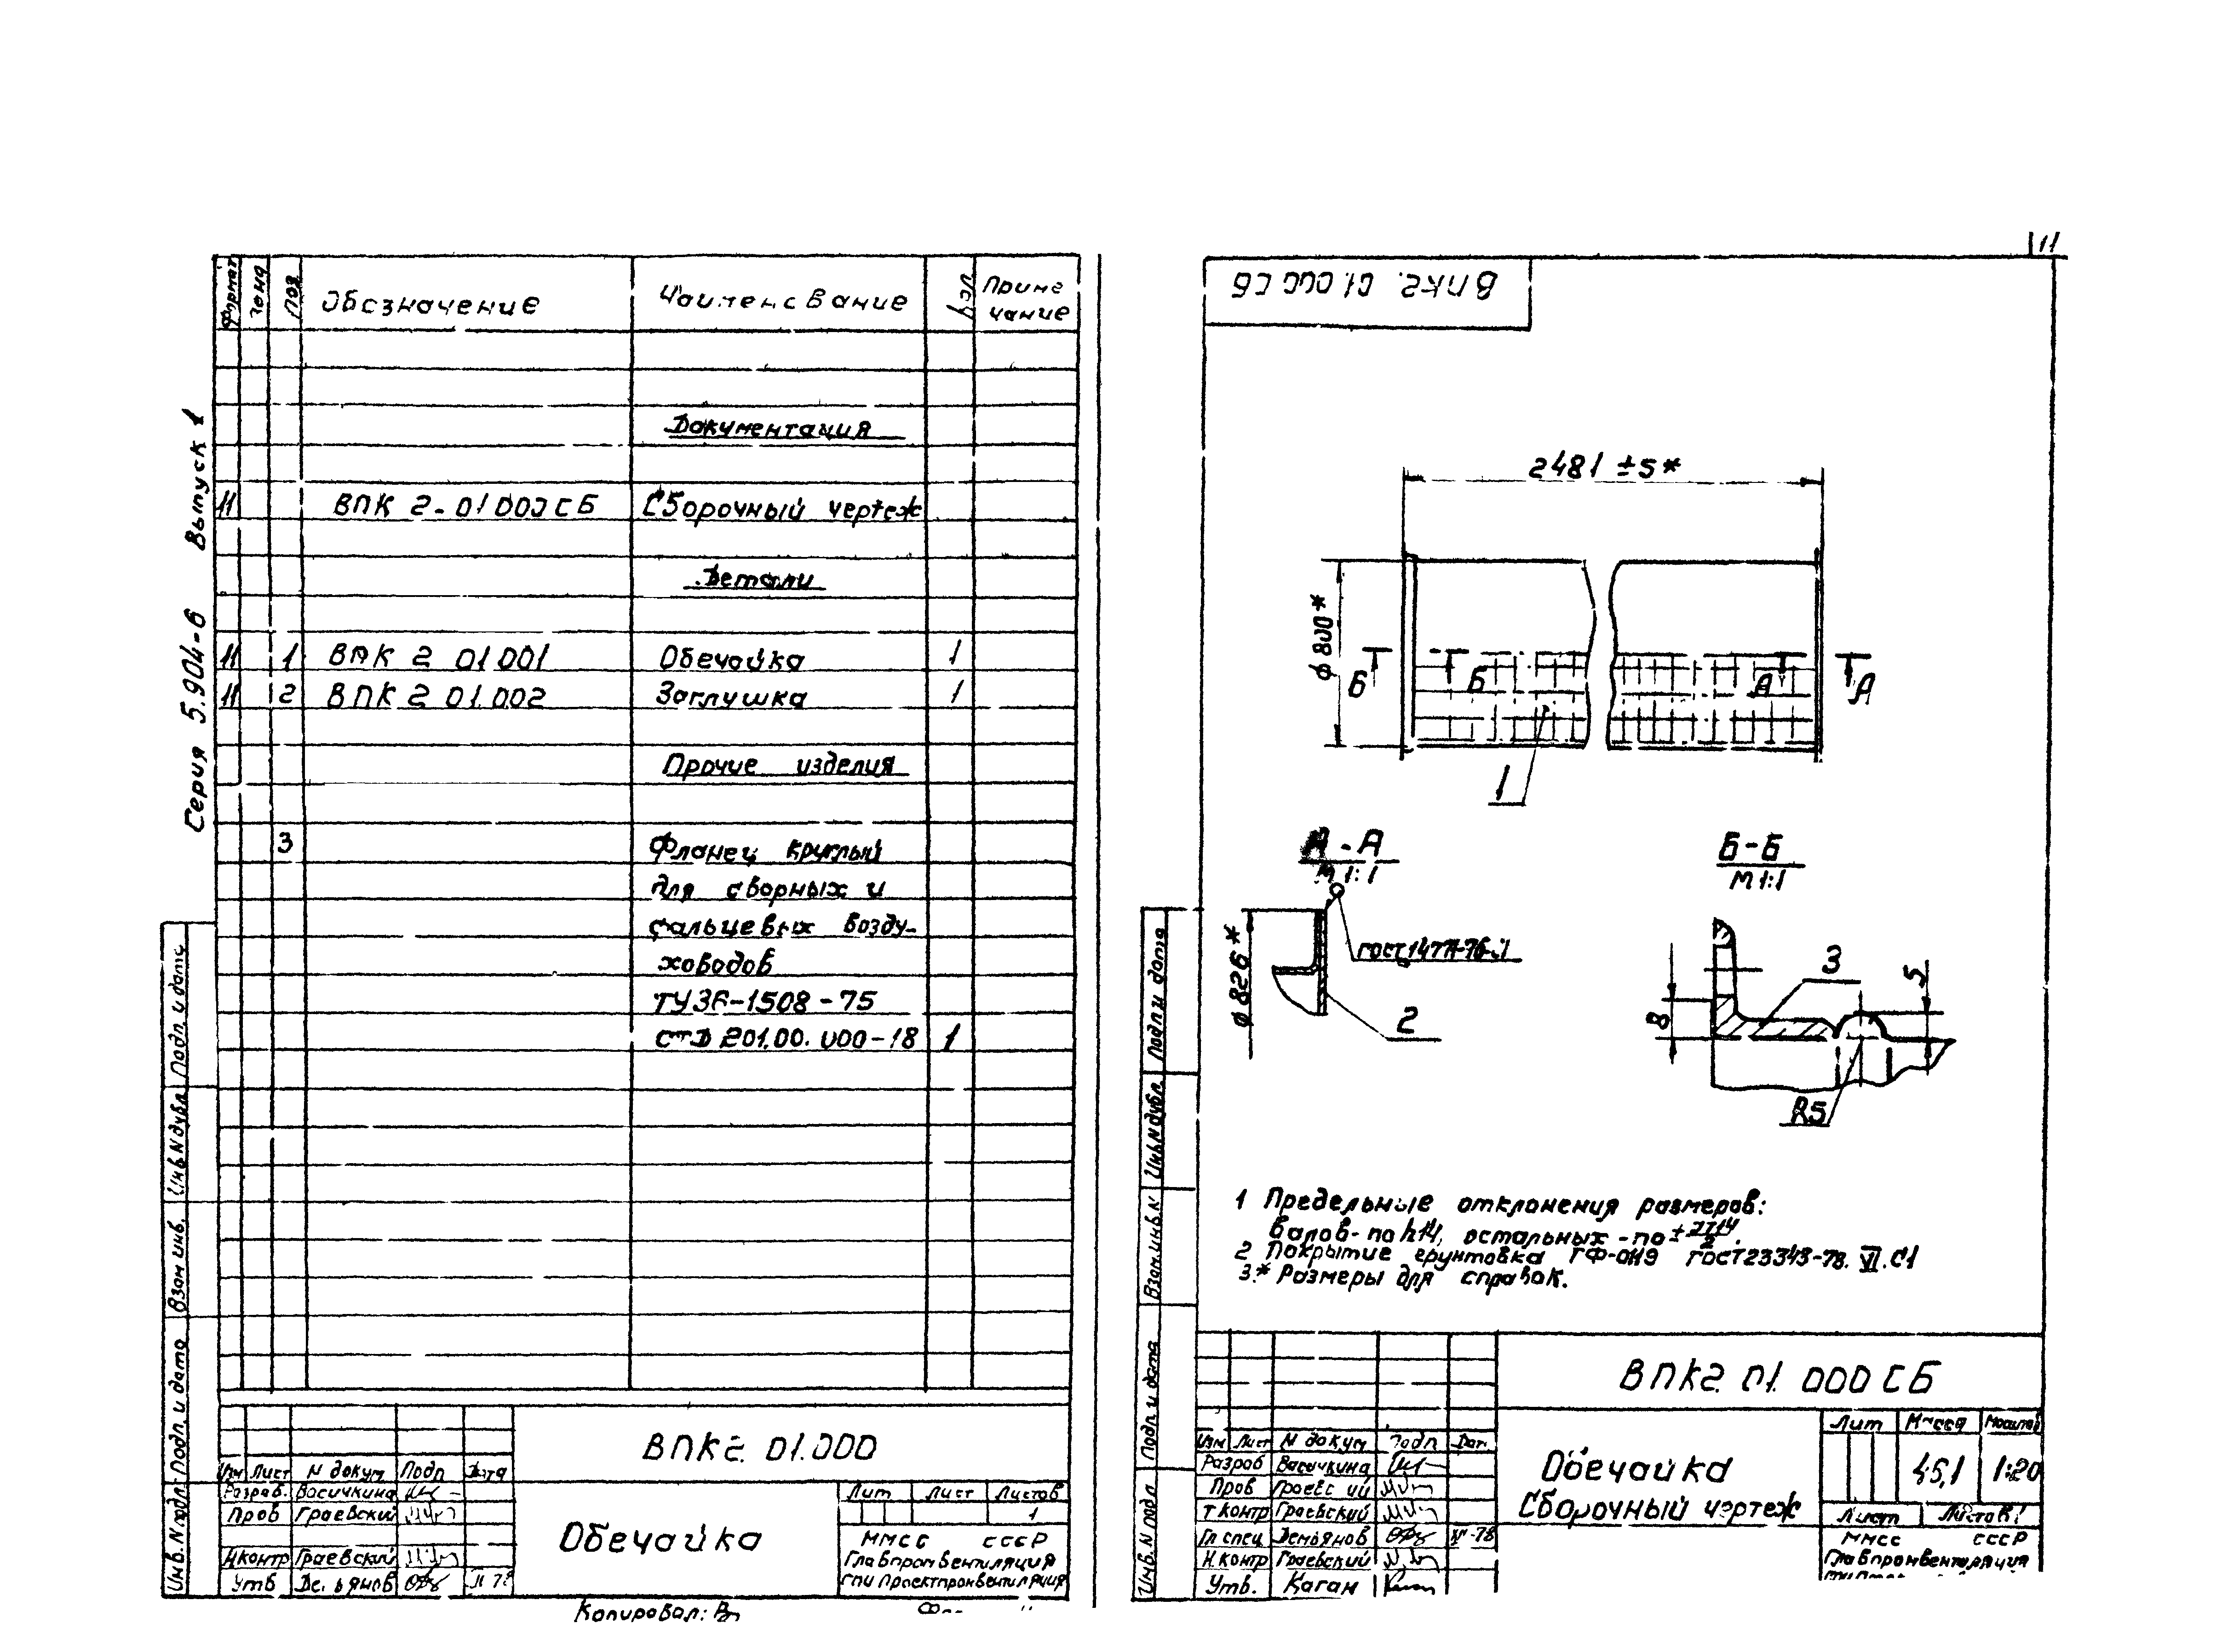 11
Серия 5.904-6 Выпуск 1
Формат Зона Поз Обозначение Наименование Кол Приме
чание
Документация
11 ВПК 2-01 000 СБ Сборочный чертеж
Детали
11 1 ВПК 2 01 001 Обечайка 1
11 2 ВПК 2 01.002 Заглушка 1
Прочие изделия
3 Фланец круглый
для сборных и
фальцевых возду-
ховодов
ТУ36-1508-75
СТД 201.00.000-18 1
Инв.N подл Подп. и дата Взам инв. Инв.N дубл Подп. и дата
ВПК2. 01.000
Изм Лист N докум Подп Дата
Разраб. Васичкина
Пров Граевский
Н.контр Граевский
Утв Демьянов 78
Обечайка
Лит Лист Листов
1
ММСС СССР
Главпромвентиляция
ГПИ Проектпромвентиляция
Копировал:
ВПК2. 01 000 СБ
2481 ±5*
ф 800*
Б Б А А
1
А-А
М 1:1
ф 826*
2
Б-Б
М 1:1
8
3
5
R5
1 Предельные отклонения размеров:
валов-по h14, остальных -по ± IT14/2.
2 Покрытие грунтовка ГФ-0119 ГОСТ23343-78. VI. С1
3.* Размеры для справок.
Инв.N подл Подп. и дата Взам.инв.N Инв.N дубл. Подп. и дата
ВПК2. 01. 000 СБ
Изм Лист N докум Подп Дат.
Разраб Васичкина
Пров Граевский
Т контр Граевский
Гл спец Демьянов -78
Н.контр Граевский
Утв. Каган
Обечайка
Сборочный чертеж
Лит Масса Масштаб
45,1 1:20
Лист Листов 1
ММСС СССР
Главпромвентиляция